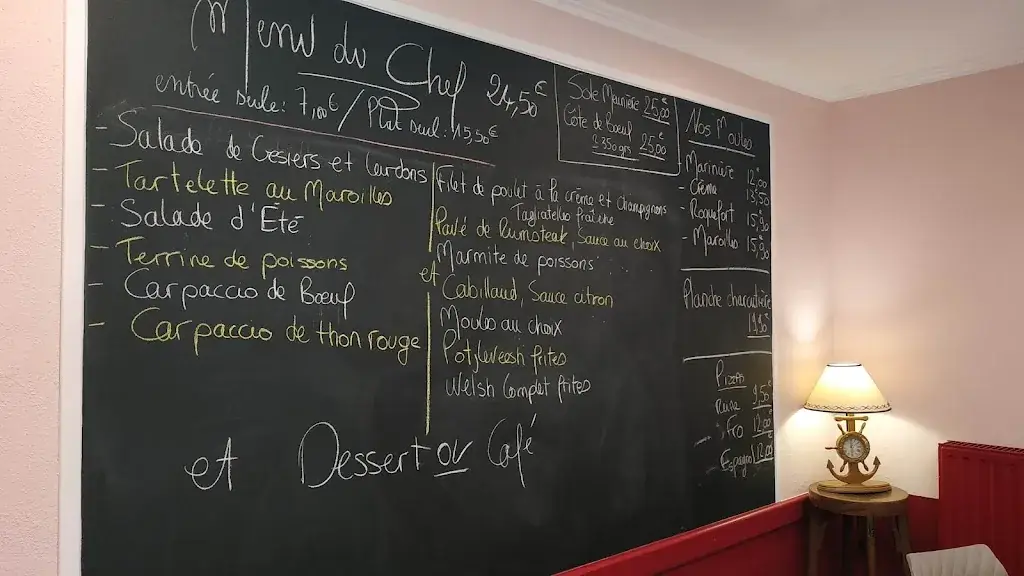 Menu du Chef 24,50€
entrée seule: 7,00€ / Plat seul: 15,50€
- Salade de Gésiers et Lardons
- Tartelette au Maroilles
- Salade d'Été
- Terrine de poissons
- Carpaccio de Bœuf
- Carpaccio de thon rouge
et
Filet de poulet à la crème et champignons
Tagliatelles fraîche
Pavé de Rumsteak, Sauce au choix
Marmite de poissons
Cabillaud, Sauce citron
Moules au choix
Potjevleesh frites
Welsh Complet frites
et Dessert ou Café
Sole Meunière 25,00
Côte de Bœuf 25,00
± 350 grs
Nos Moules
Marinière 12€,00
- Crème 13,50
- Roquefort 15€,50
- Maroilles 15,50
Planche charcutière
19,50€
Pizza
9,50€
12,00